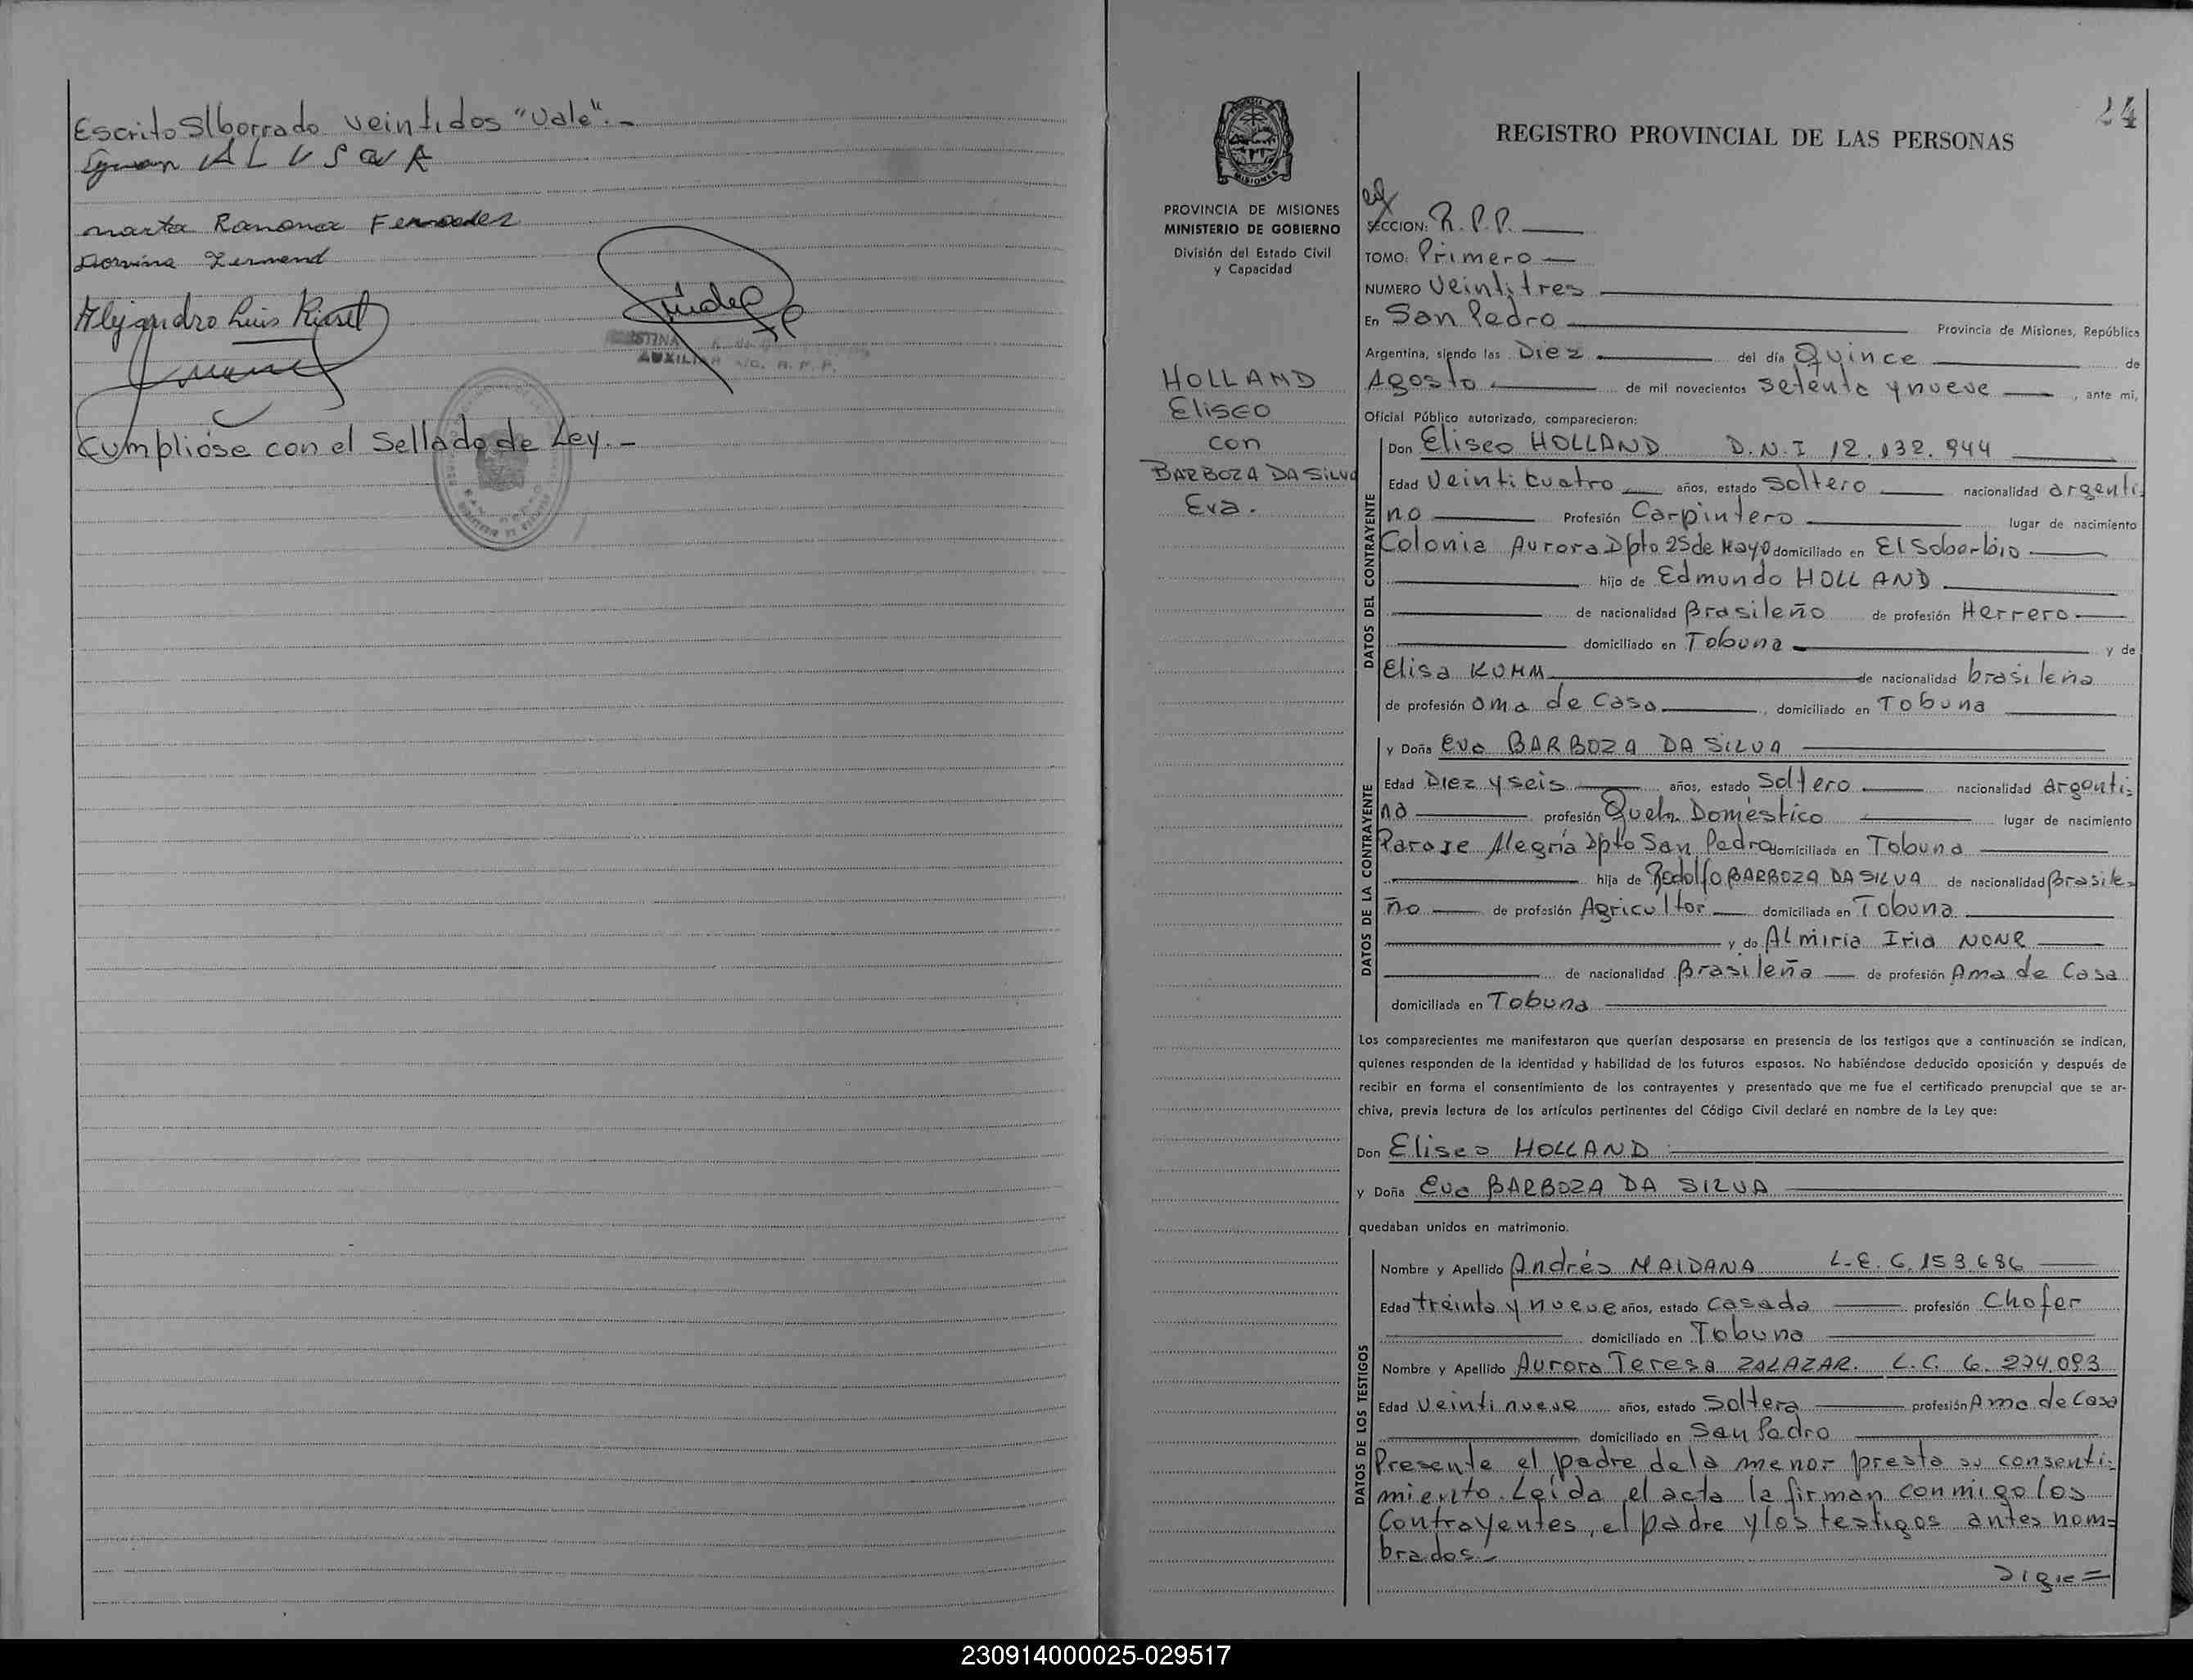 Escrito S/borrado veintidos "Vale".-
Marta Ramona
Alejandro Luis
AUXILIAR A/C. R. P. P.
Cumplióse con el Sellado de Ley.-
24
REGISTRO PROVINCIAL DE LAS PERSONAS
MISIONES
PROVINCIA DE MISIONES
MINISTERIO DE GOBIERNO
División del Estado Civil
y Capacidad
HOLLAND
Eliseo
con
BARBOZA DA SILVA
Eva.
SECCION: R.P.P.
TOMO: Primero
NUMERO Veintitres
En San Pedro Provincia de Misiones, República
Argentina, siendo las Diez del día Quince de
Agosto de mil novecientos setenta y nueve , ante mi,
Oficial Público autorizado, comparecieron:
DATOS DEL CONTRAYENTE
Don Eliseo HOLLAND D.N.I 12.132.944
Edad Veinticuatro años, estado Soltero nacionalidad argenti-
no Profesión Carpintero lugar de nacimiento
Colonia Aurora Dpto 25 de Mayo domiciliado en El Soborbio
hijo de Edmundo HOLLAND
de nacionalidad Brasileño de profesión Herrero
domiciliado en Tobuna y de
Elisa KUMM de nacionalidad brasileña
de profesión ama de Casa , domiciliado en Tobuna
DATOS DE LA CONTRAYENTE
y Doña Eva BARBOZA DA SILVA
Edad Diez y seis años, estado Soltero nacionalidad Argenti-
na profesión Queh. Doméstico lugar de nacimiento
Paraje Alegría Dpto San Pedro domiciliada en Tobuna
hija de Rodolfo BARBOZA DA SILVA de nacionalidad Brasile-
ño de profesión Agricultor domiciliada en Tobuna
y de Almiria Iria NONR
de nacionalidad Brasileña de profesión Ama de Casa
domiciliada en Tobuna
Los comparecientes me manifestaron que querían desposarse en presencia de los testigos que a continuación se indican,
quienes responden de la identidad y habilidad de los futuros esposos. No habiéndose deducido oposición y después de
recibir en forma el consentimiento de los contrayentes y presentado que me fue el certificado prenupcial que se ar-
chiva, previa lectura de los artículos pertinentes del Código Civil declaré en nombre de la Ley que:
Don Eliseo HOLLAND
y Doña Eva BARBOZA DA SILVA
quedaban unidos en matrimonio.
DATOS DE LOS TESTIGOS
Nombre y Apellido Andrés MAIDANA L.E. 6.153.686
Edad treinta y nueve años, estado Casado profesión Chofer
domiciliado en Tobuna
Nombre y Apellido Aurora Teresa ZALAZAR. L.C. 6.274.093
Edad Veintinueve años, estado Soltera profesión Ama de Casa
domiciliado en San Pedro
Presente el padre de la menor presta su consenti-
miento. Leída el acta la firman conmigo los
Contrayentes, el padre y los testigos antes nom-
brados.-
Sigue=
230914000025-029517